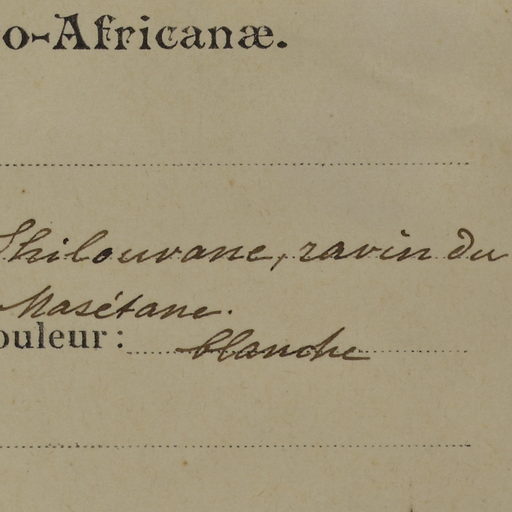 o-Africanæ.
Shilouvane, ravin du
Masétane.
ouleur: blanche